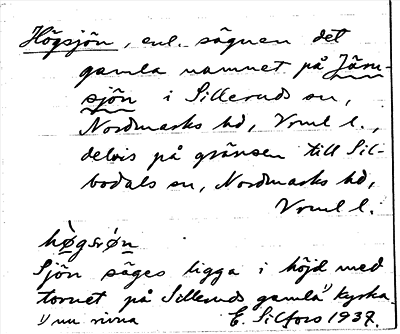 Högsjön, enl. sägnen det
gamla namnet på Järn-
sjön i Silleruds sn,
Nordmarks hd, Vrml l.,
delvis på gränsen till Sil-
bodals sn, Nordmarks hd,
Vrml l.
høgsrøn
Sjön säges ligga i höjd med
tornet på Silleruds gamla¹⁾ kyrka.
¹⁾ nu rivna E. Silfors 1937.